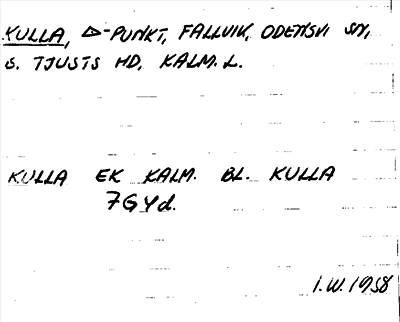 KULLA, ▷-PUNKT, FALLVIK, ODENSVI SN,
S. TJUSTS HD, KALM. L.
KULLA EK KALM. BL. KULLA
7G4d.
I.W. 1958